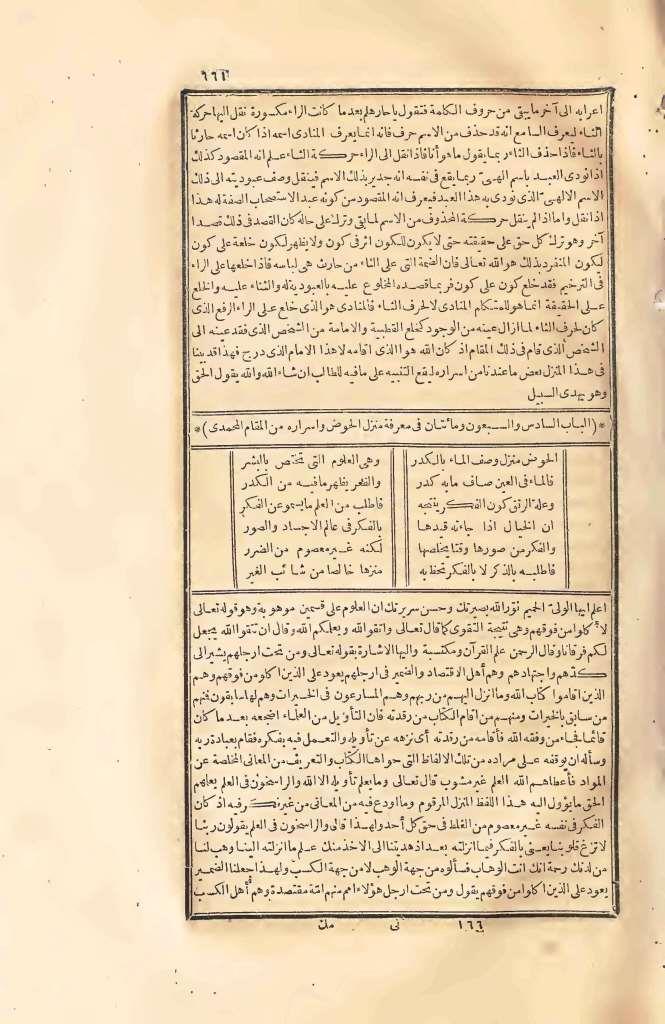 ٦٦١
اعرابه الى آخر ما يبقى من حروف الكلمة فتقول يا حار هلم بعد ما كانت الراء مكسورة نقل اليها حركة
الثاء ليعرف السامع انه قد حذف من الاسم حرف فانه انما يعرف المنادى اسمه اذا كان اسمه حارثا
بالثاء فاذا حذف الثاء ربما يقول ما هو أنا فاذا نقل الى الراء حركة الثاء علم انه المقصود كذلك
اذا نودى العبد باسم الهى ربما يقع فى نفسه انه جدير بذلك الاسم فينقل وصف عبوديته الى ذلك
الاسم الالهى الذى نودى به هذا العبد فيعرف انه المقصود من كونه عبد الاستصحاب الصفة له هذا
اذا نقل واما اذا لم ينقل حركة المحذوف من الاسم لما بقى وترك على حاله كان القصد فى ذلك قصدا
آخر وهو ترك كل حق على حقيقته حتى لا يكون لكون اثر فى كون ولا يظهر لكون خلعة على كون
ليكون المنفرد بذلك هو الله تعالى فان الضمة التى على الثاء من حارث هى لباسه فاذا خلعها على الراء
فى الترخيم فقد خلع كون على كون فربما قصده المخلوع عليه بالعبودية له والثناء عليه والخلع
على الحقيقة انما هو للمتكلم المنادى لا لحرف الثاء فالمنادى هو الذى خلع على الراء الرفع الذى
كان لحرف الثاء لما ازال عينه من الوجود كخلع القطبية والامامة من الشخص الذى فقد عينه الى
الشخص الذى قام فى ذلك المقام اذ كان الله هو الذى اقامه لا هذا الامام الذى درج فهذا قد بينا
فى هذا المنزل بعض ما عندنا من اسراره ليقع التنبيه على ما فيه للطالب ان شاء الله والله يقول الحق
وهو يهدى السبيل
*(الباب السادس والسبعون ومائتان فى معرفة منزل الحوض واسراره من المقام المحمدى)*
الحوض منزل وصف الماء بالكدر وهى العلوم التى تختص بالبشر
فالماء فى العين صاف ما به كدر والقعر يظهر ما فيه من الكدر
وعلة الرنق كون الفكر ينتجه فاطلب من العلم ما يسمو عن الفكر
ان الخيال اذا جاءته قيدها بالفكر فى عالم الاجساد والصور
والفكر من صورها وقتا يخلصها لكنه غير معصوم من الضرر
فاطلبه بالذكر لا بالفكر تحظ به منزها خالصا من شائب الغير
اعلم ايها الولى الحميم نور الله بصيرتك وحسن سريرتك ان العلوم على قسمين موهوبة وهو قوله تعالى
لأكلوا من فوقهم وهى نتيجة التقوى كما قال تعالى واتقوا الله ويعلمكم الله وقال ان تتقوا الله يجعل
لكم فرقانا وقال الرحمن علم القرآن ومكتسبة واليها الاشارة بقوله تعالى ومن تحت ارجلهم يشير الى
كدهم واجتهادهم وهم أهل الاقتصاد والضمير فى ارجلهم يعود على الذين اكلوا من فوقهم وهم
الذين اقاموا كتاب الله وما انزل اليهم من ربهم وهم المسارعون فى الخيرات وهم لها سابقون فمنهم
من سابق بالخيرات ومنهم من أقام الكتاب من رقدته فان التأويل من العلماء اضجعه بعد ما كان
قائما فجاء من وفقه الله فأقامه من رقدته أى نزهه عن تأويله والتعمل فيه بفكره فقام بعبادة ربه
وسأله ان يوقفه على مراده من تلك الالفاظ التى حواها الكتاب والتعريف من المعانى المخلصة عن
المواد فأعطاهم الله العلم غير مشوب قال تعالى وما يعلم تأويله الا الله والراسخون فى العلم يعلمهم
الحق ما يؤول اليه هذا اللفظ المنزل المرقوم وما اودع فيه من المعانى من غير فكر فيه اذ كان
الفكر فى نفسه غير معصوم من الغلط فى حق كل أحد ولهذا قال والراسخون فى العلم يقولون ربنا
لا تزغ قلوبنا يعنى بالفكر فيما انزلته بعد اذ هديتنا الى الاخذ منك علم ما انزلته الينا وهب لنا
من لدنك رحمة انك انت الوهاب فسألوه من جهة الوهب لا من جهة الكسب ولهذا جعلنا الضمير
يعود على الذين اكلوا من فوقهم يقول ومن تحت ارجل هؤلاء امم منهم امة مقتصدة وهم أهل الكسب
١٦٦ نى مك